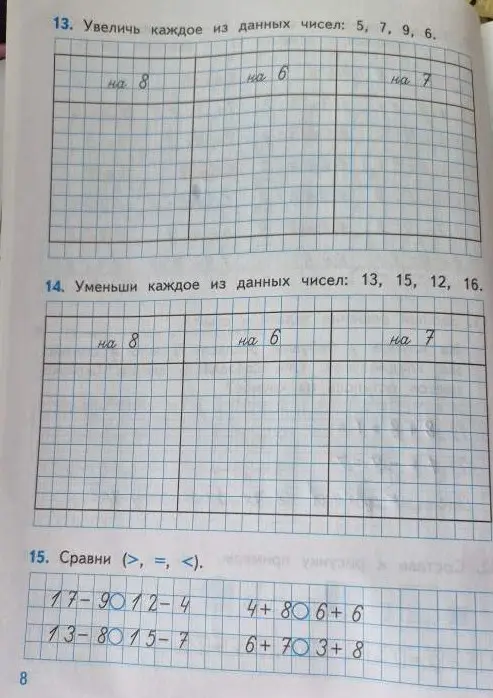 13. Увеличь каждое из данных чисел: 5, 7, 9, 6.
на 8 на 6 на 7
14. Уменьши каждое из данных чисел: 13, 15, 12, 16.
на 8 на 6 на 7
15. Сравни (>, =, <).
17-9○12-4 4+8○6+6
13-8○15-7 6+7○3+8
8